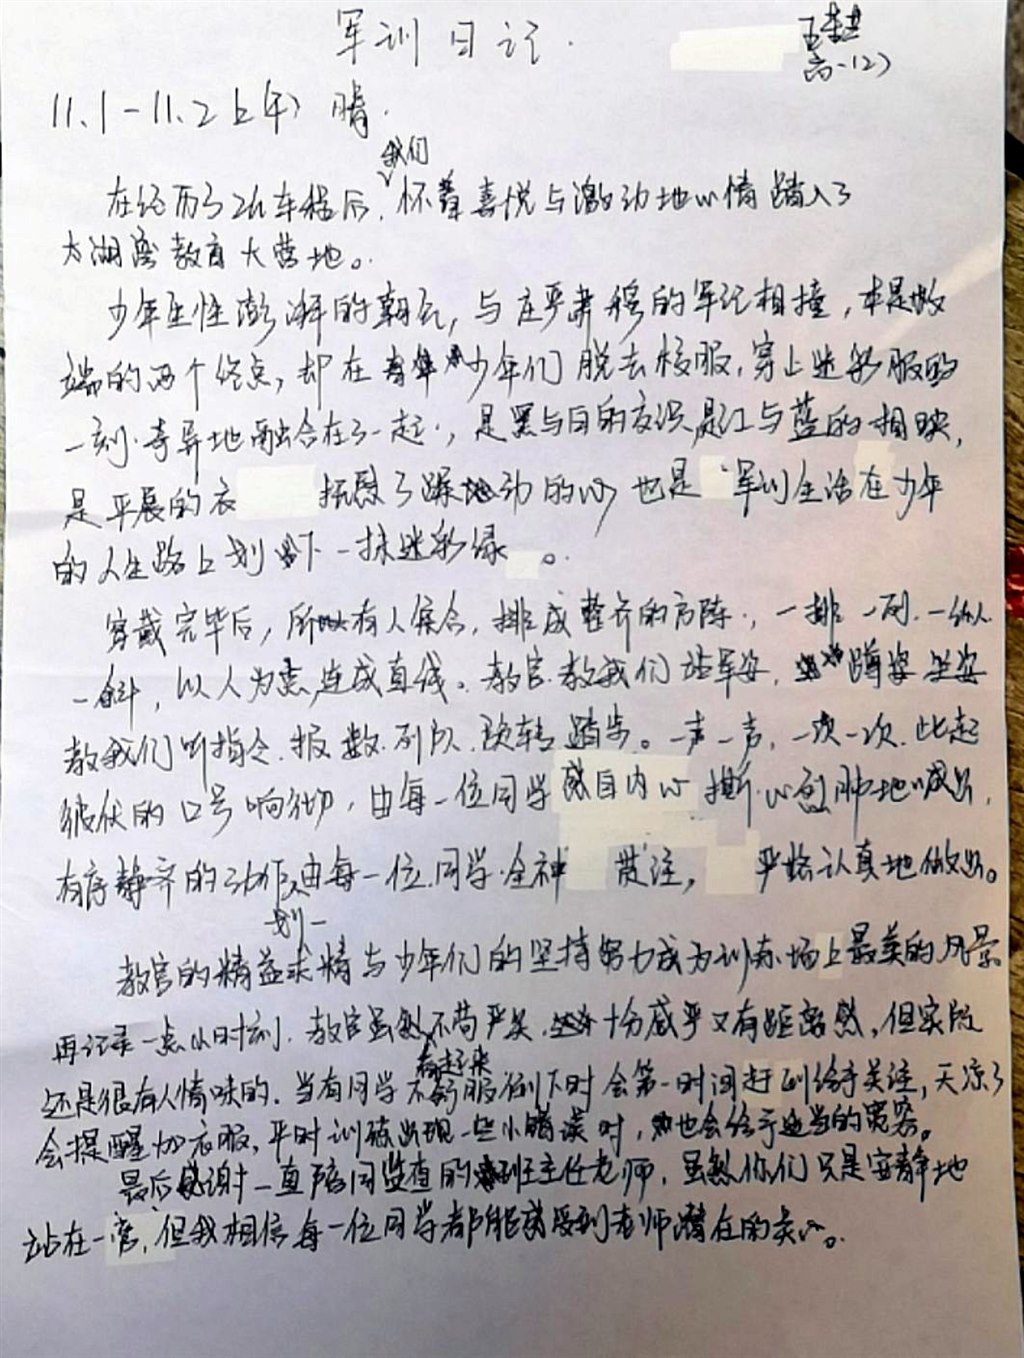 军训日记.
高一(2)
11.1-11.2上(午) 晴.
我们
在经历了2h车程后,怀着喜悦与激动地心情踏入了
太湖湾教育大营地。
少年生性澎湃的朝气,与庄严肃穆的军纪相撞,本是极
端的两个终点,却在少年们脱去校服,穿上迷彩服的
一刻.奇异地融合在了一起.,是黑与白的交织,是红与蓝的相映,
是平展的衣 抚慰了躁动的心,也是 军训生活在少年
的人生路上划下一抹迷彩绿 。
穿戴完毕后,所有人集合,排成整齐的方阵.,一排一列.一纵
一斜,以人为点,连成直线。教官教我们站军姿,蹲姿 坐姿
教我们听指令.报数.列队.跨转 踏步。一声一声,一次一次.此起
彼伏的口号响彻,由每一位同学 发自内心 撕心 地喊出,
有序 齐的动作,由每一位同学.全神 贯注, 严格认真地做出。
划一
教官的精益求精与少年们的坚持努力成为训练场上最美的风景
再记录一点小时刻.教官虽然不苟严笑.十分威严又有距离感,但实际
看起来
还是很有人情味的.当有同学不舒服倒下时会第一时间赶到给予关注,天凉了
会提醒加衣服,平时训练出现一些小错误时,也会给予适当的宽容。
最后感谢一直陪同监查的班主任老师,虽然你们只是安静地
站在一旁,但我相信每一位同学都能感受到老师潜在的关心。